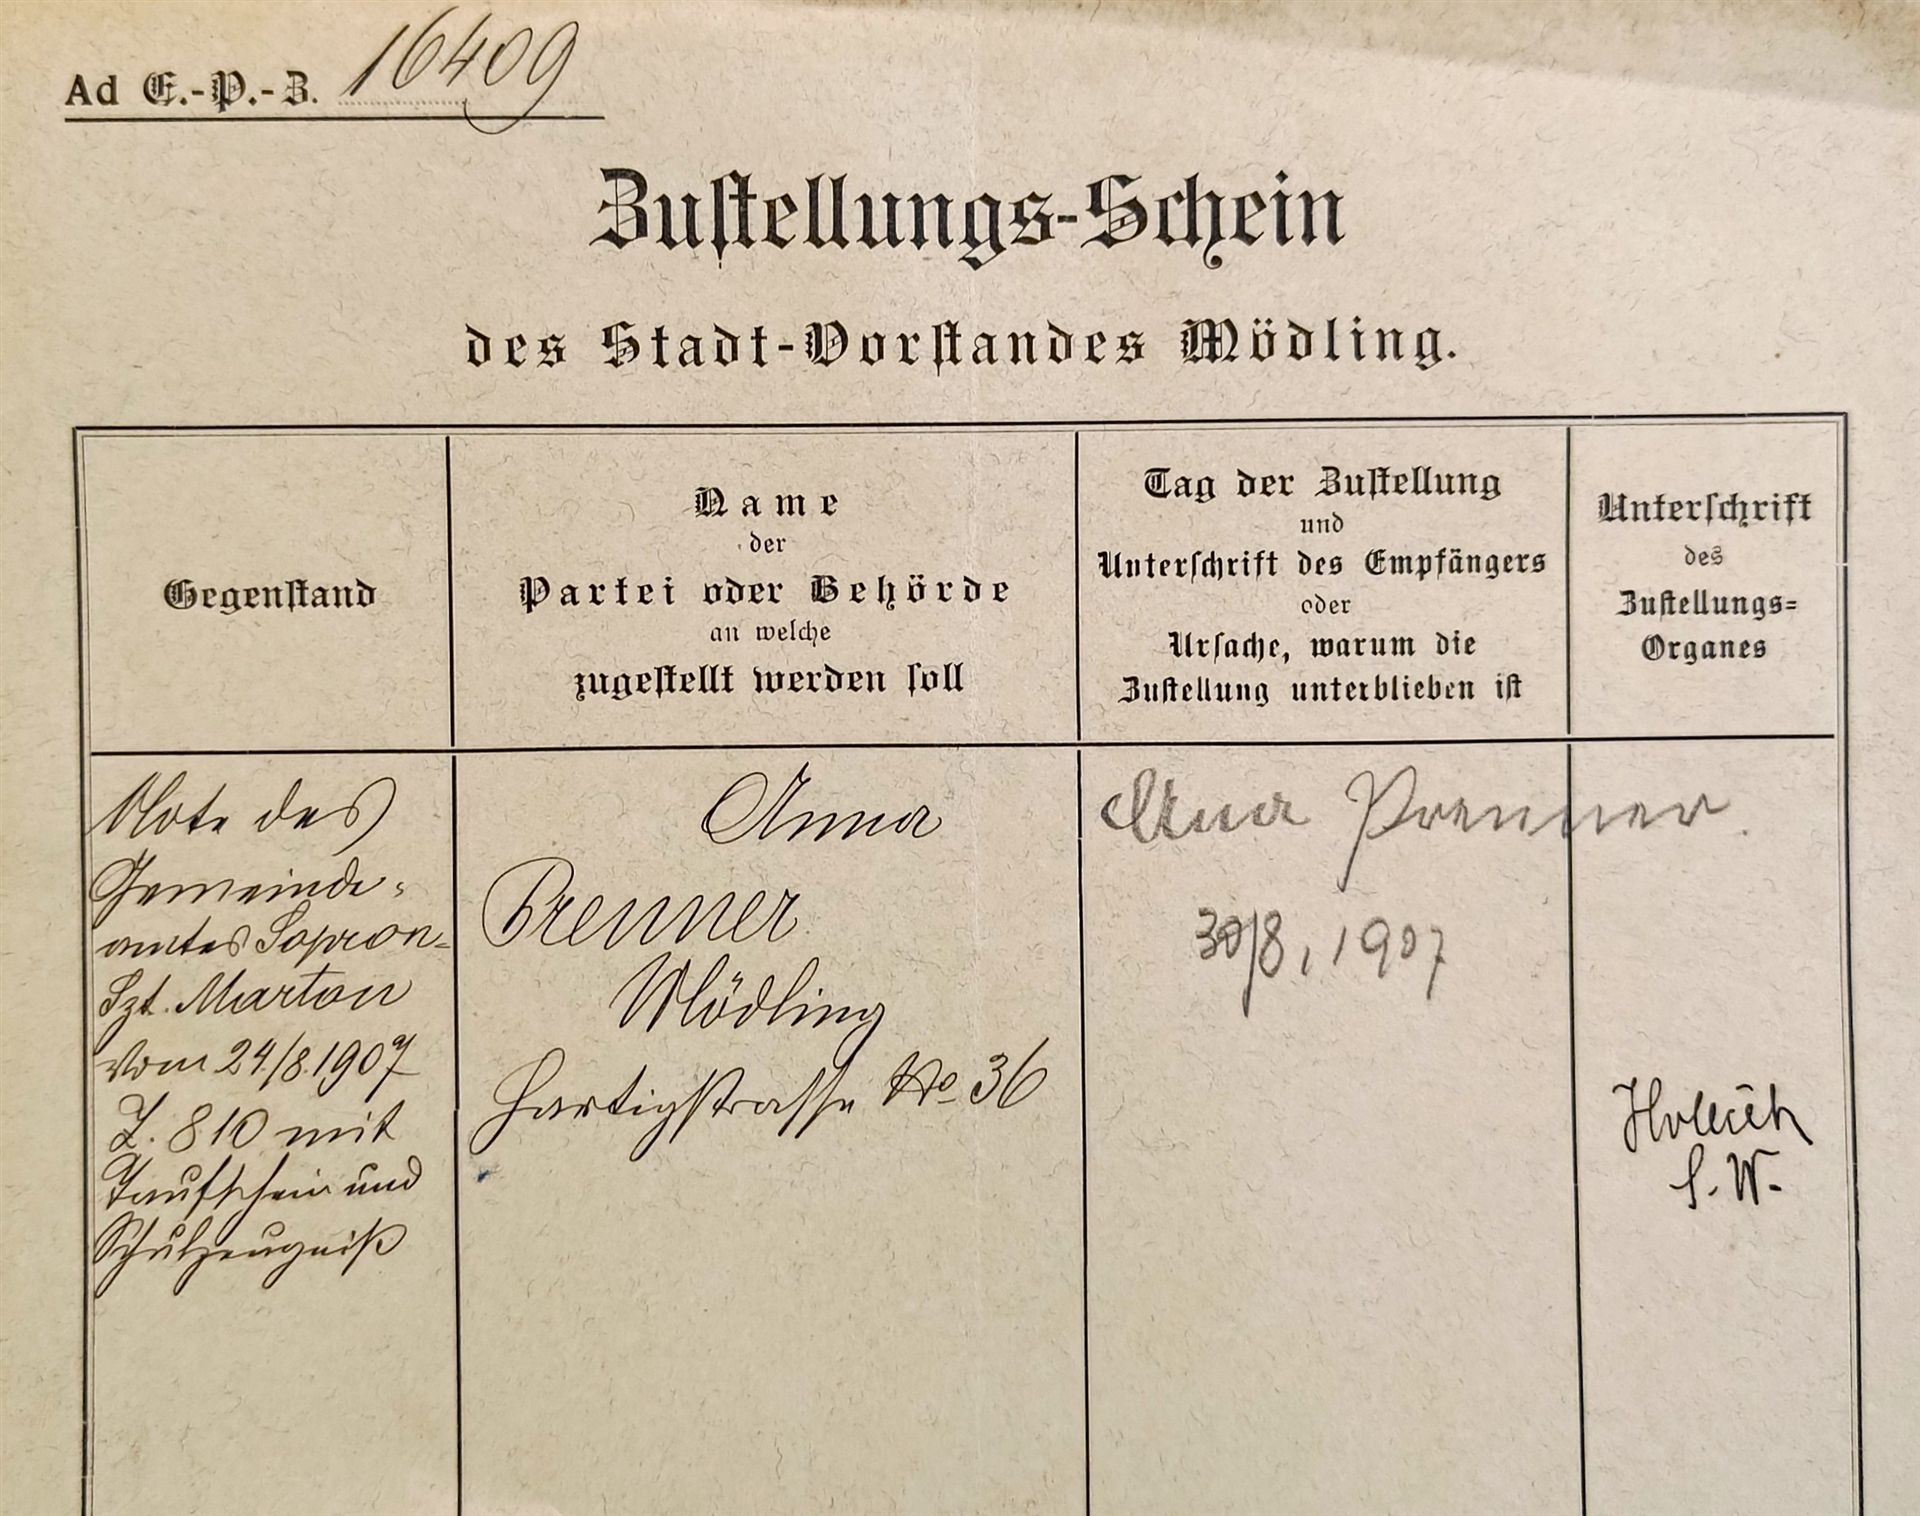 Ad E.-P.-Z. 16409
Zustellungs-Schein
des Stadt-Vorstandes Mödling.
Gegenstand
Name
der
Partei oder Behörde
an welche
zugestellt werden soll
Tag der Zustellung
und
Unterschrift des Empfängers
oder
Ursache, warum die
Zustellung unterblieben ist
Unterschrift
des
Zustellungs-
Organes
Note des
Gemeinde-
amtes Sopron-
Szt. Marton
vom 24./8.1907
Z. 810 mit
Taufschein und
Schulzeugniß
Anna
Prenner
Mödling
Hartigstrasse No 36
Ana Prenner.
30/8, 1907
S. W.